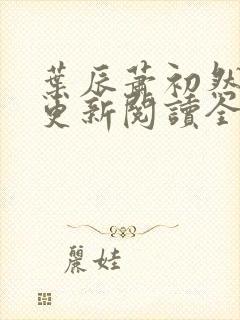 葉辰蕭初然
更新閱讀全
麗娃